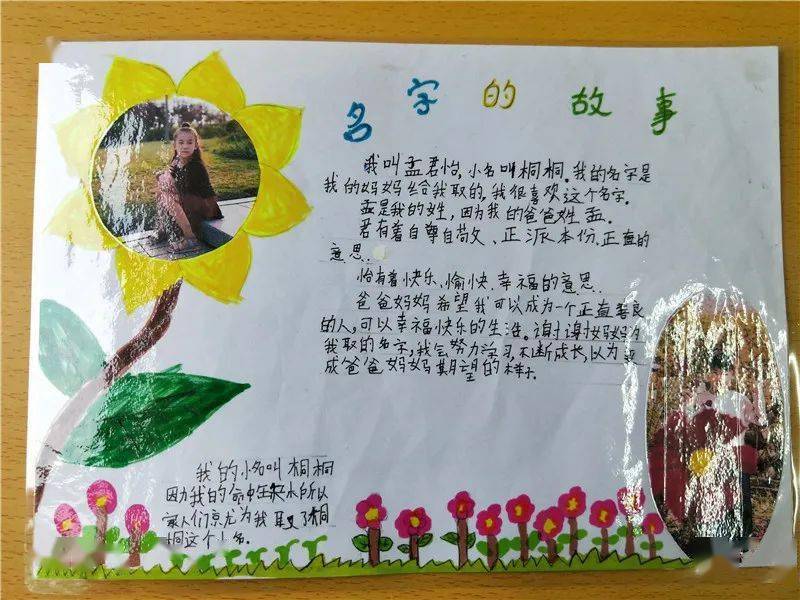 名字的故事
我叫孟君怡,小名叫桐桐。我的名字是
我的妈妈给我取的,我很喜欢这个名字。
孟是我的姓,因为我的爸爸姓孟。
君有着自尊自敬、正派本份.正直的
意思.
怡有着快乐、愉快.幸福的意思.
爸爸妈妈希望我可以成为一个正直善良
的人,可以幸福快乐的生活。谢谢妈妈为
我取的名字,我会努力学习,不断成长,以为
成爸爸妈妈期望的样子.
我的小名叫桐桐
因为我的命中缺木所以
家人们就为我取了桐
桐这个小名.